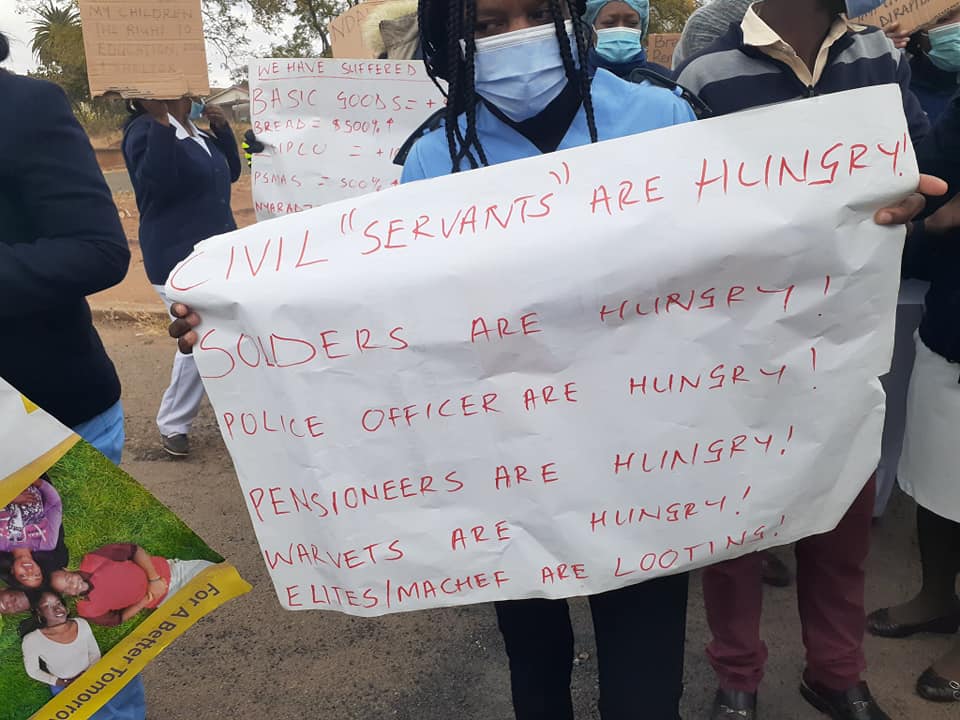 MY CHILDREN
THE RIGHT TO
EDUCATION,
WE HAVE SUFFERED
BASIC GOODS = +
BREAD = $500% ↑
= +
PSMAS = 500% ↑
CIVIL "SERVANTS" ARE HUNGRY!
SOLDERS ARE HUNGRY!
POLICE OFFICER ARE HUNGRY!
PENSIONEERS ARE HUNGRY!
WARVETS ARE HUNGRY!
ELITES/MACHEF ARE LOOTING!
For A Better Tomorrow